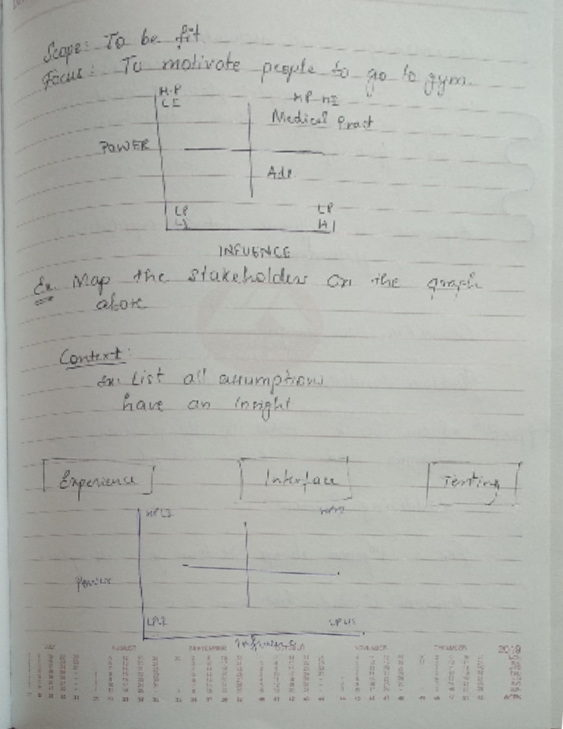 Scope: To be fit
Focus: To motivate people to go to gym
H.P HP HI
LI
Medical Pract
POWER
Adp
LP LP
LI HI
INFUENCE
Ex Map the stakeholders on the graph
above
Context:
Ex: List all assumptions
have an insight
Experience Interface Testing
HPLI HPHI
Power
LPLI LPHI
Influence
AUGUST SEPTEMBER OCTOBER NOVEMBER DECEMBER 2019